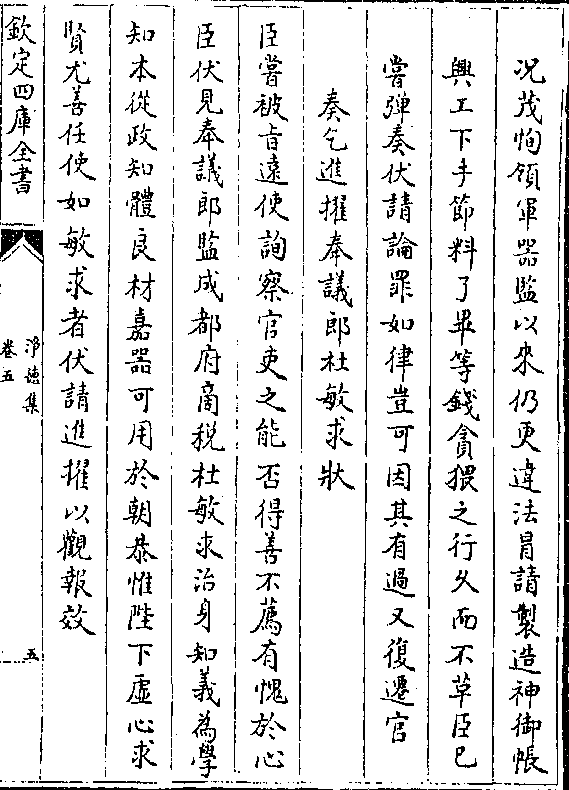 况茂恂領軍器監以來仍更違法冐請製造神御帳
興工下手節料了畢等錢貪猥之行久而不草臣已
嘗弹奏伏請論罪如律豈可因其有過又復遷官
奏乞進擢奉議郎杜敏求狀
臣嘗被旨遠使詢察官吏之能否得善不薦有愧於心
臣伏見奉議郎監成都府商税杜敏求治身知義為學
知本從政知體良材嘉器可用於朝恭惟陛下虚心求
賢尤善任使如敏求者伏請進擢以觀報效
欽定四庫全書
淨徳集
卷五
五